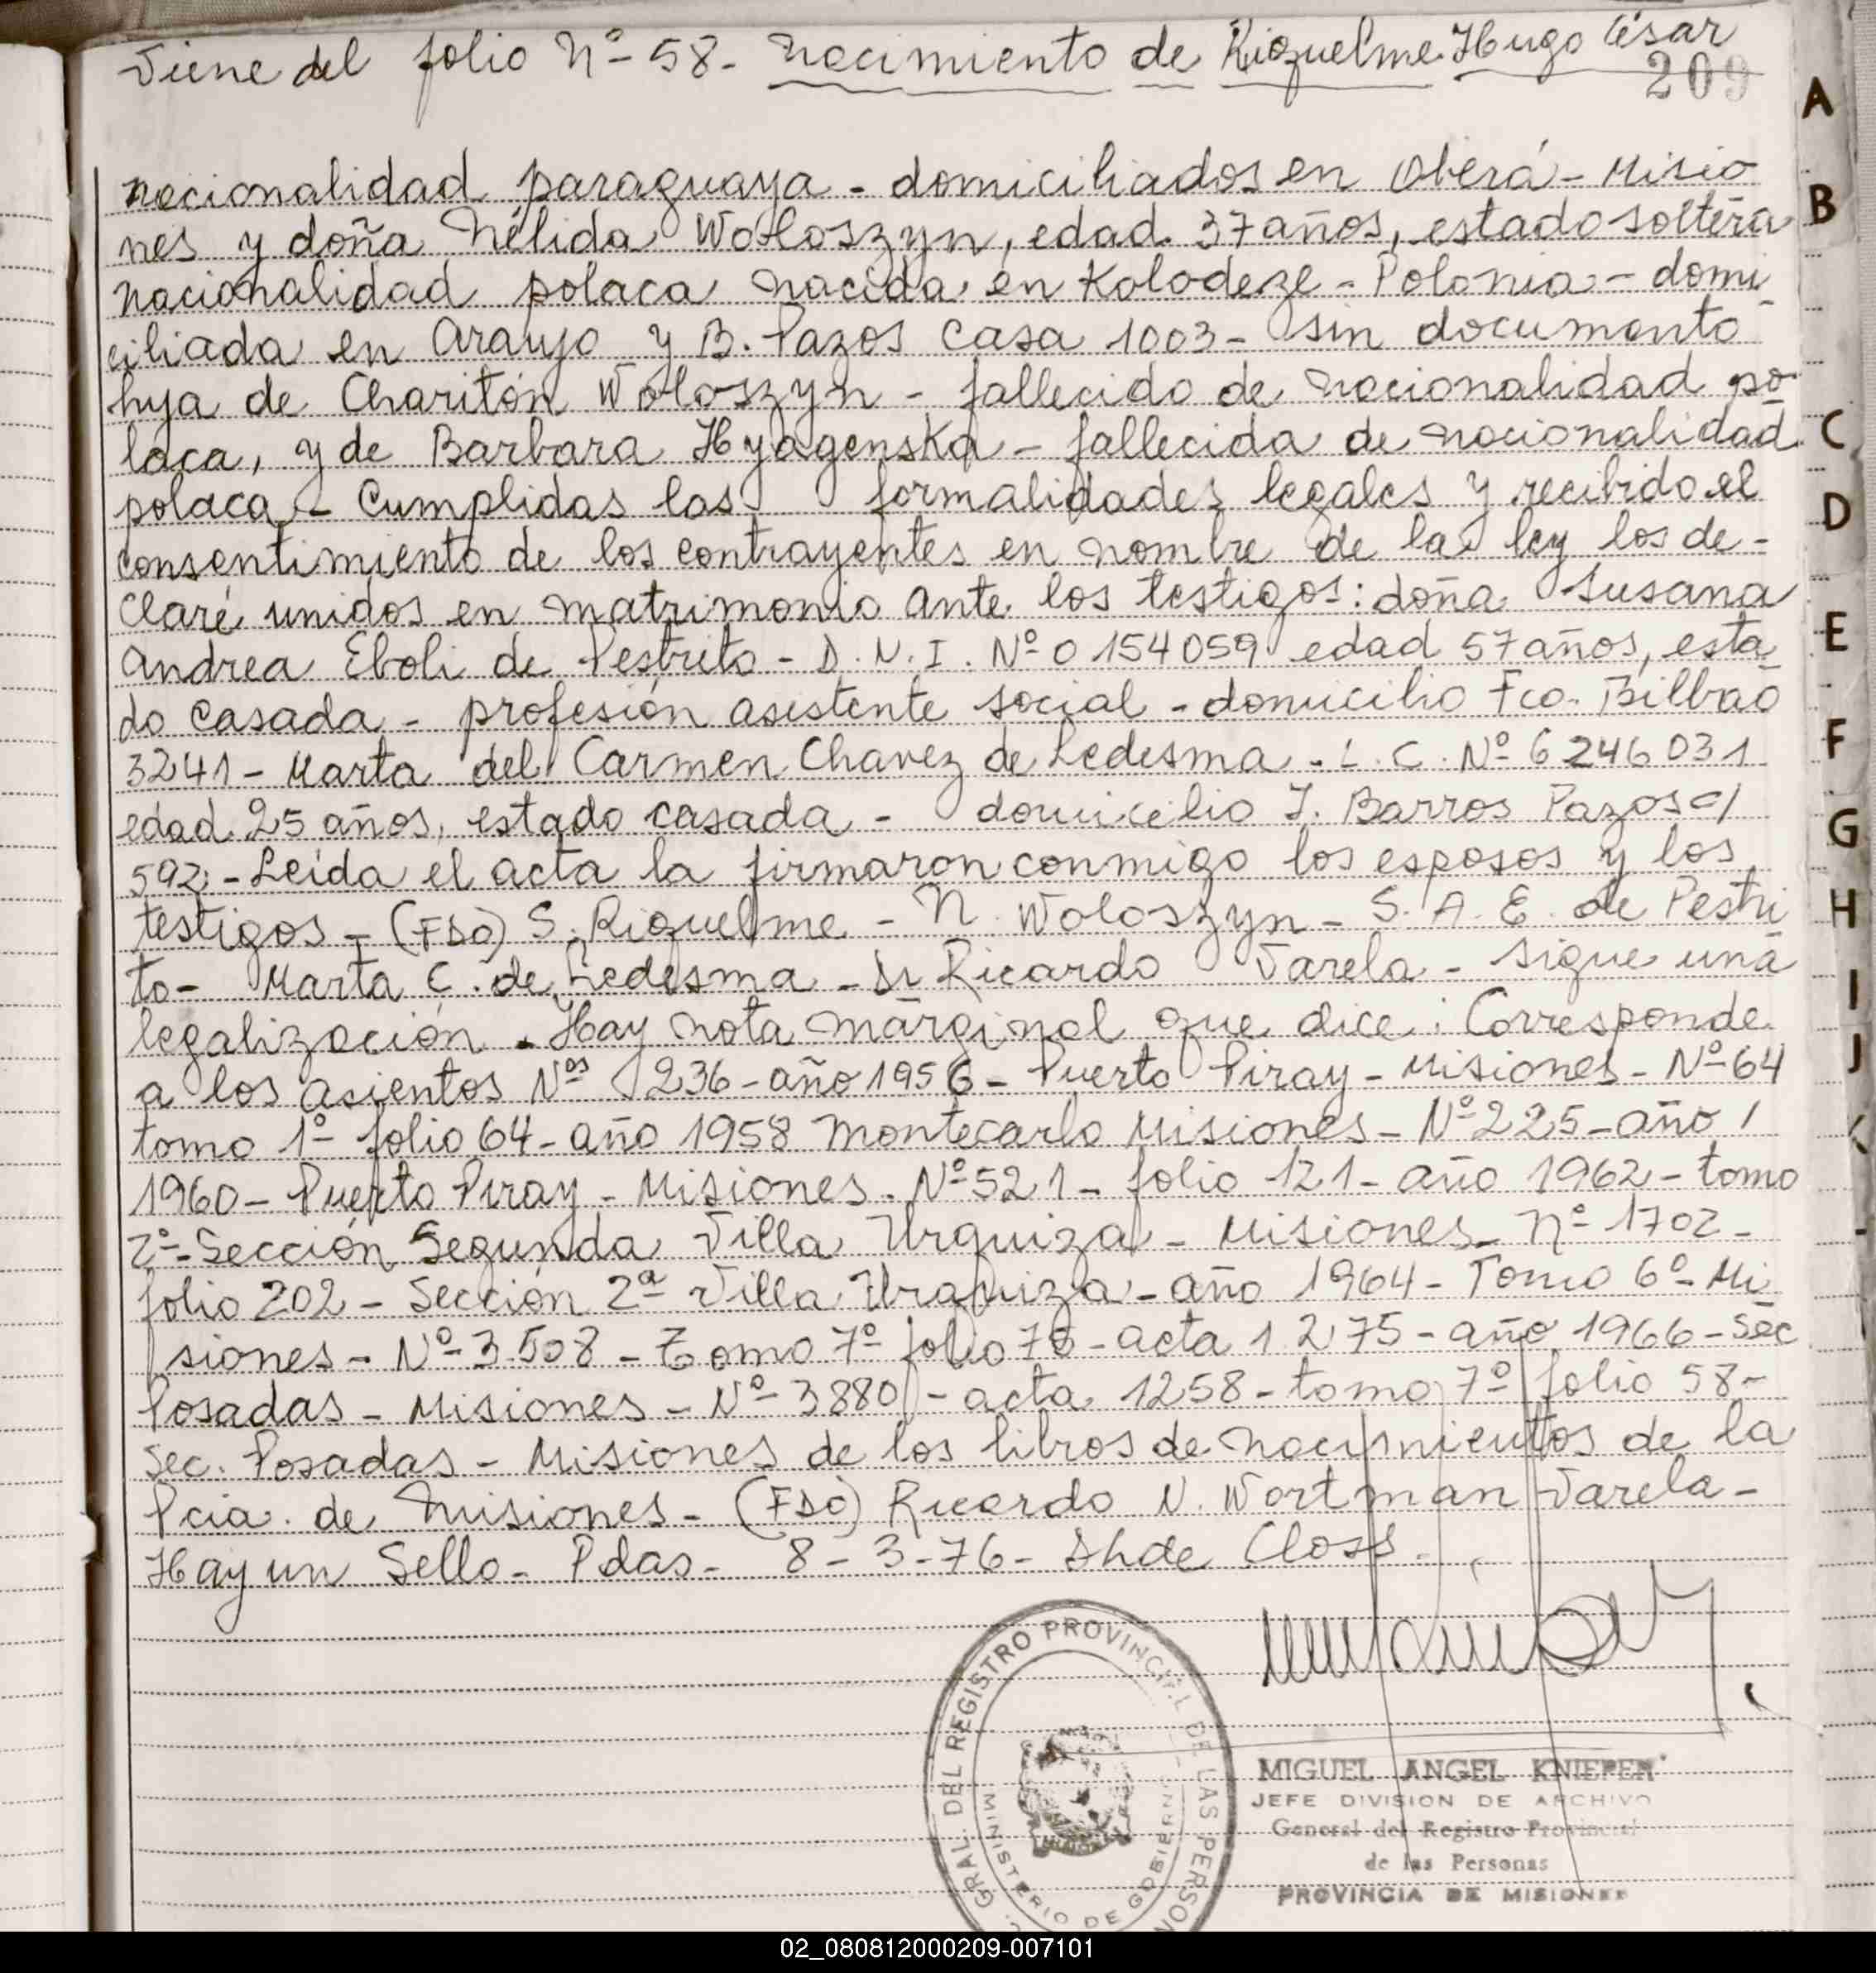 Viene del folio Nº 58 - nacimiento de Riquelme Hugo César
209
nacionalidad paraguaya - domiciliados en Oberá - Misio
nes y doña Nélida Woloszyn, edad 37 años, estado soltera
nacionalidad polaca nacida en Kolodeze - Polonia - domi
ciliada en Araujo y B. Pazos casa 1003 - sin documento
hija de Charitón Woloszyn - fallecido de nacionalidad po
laca, y de Barbara Hyagenska - fallecida de nacionalidad
polaca - Cumplidas las formalidades legales y recibido el
consentimiento de los contrayentes en nombre de la ley los de-
claré unidos en matrimonio ante los testigos: doña Susana
Andrea Eboli de Pestrito - D.N.I. Nº 0154059 edad 57 años, esta
do casada - profesión asistente social - domicilio Fco. Bilbao
3241 - Marta del Carmen Chavez de Ledesma - L.C. Nº 6246031
edad 25 años, estado casada - domicilio J. Barros Pazos c/
592 - Leída el acta la firmaron conmigo los esposos y los
testigos - (Fdo) S. Riquelme - N. Woloszyn - S.A.E. de Pestri
to - Marta C. de Ledesma - Dr Ricardo Varela - sigue una
legalización - Hay nota marginal que dice: Corresponde
a los asientos Nos 236 - año 1956 - Puerto Piray - Misiones - Nº 64
tomo 1º folio 64 - año 1958 Montecarlo Misiones - Nº 225 - año /
1960 - Puerto Piray - Misiones - Nº 521 - folio 121 - año 1962 - tomo
2º - Sección Segunda Villa Urquiza - Misiones - Nº 1702 -
folio 202 - Sección 2ª Villa Urquiza - año 1964 - Tomo 6º - Mi
siones - Nº 3.508 - Tomo 7º folio 75 - acta 1275 - año 1966 - Sec
Posadas - Misiones - Nº 3880 - acta 1258 - tomo 7º folio 58 -
Sec. Posadas - Misiones de los libros de nacimientos de la
Pcia. de Misiones - (Fdo) Ricardo N. Wortman Varela -
Hay un Sello - Pdas - 8 - 3 - 76 - Closs
GRAL. DEL REGISTRO PROVINCIAL DE LAS PERSON
MINISTERIO DE GOBIERN
MIGUEL ANGEL KNIEPER
JEFE DIVISION DE ARCHIVO
General del Registro Provincial
de las Personas
PROVINCIA DE MISIONES
A
B
C
D
E
F
G
H
I
J
K
02_080812000209-007101